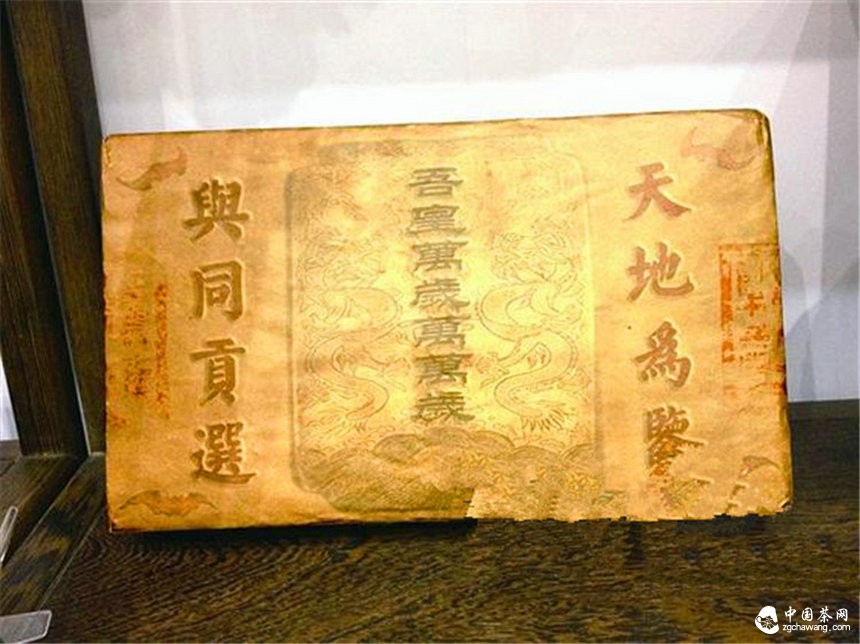 天地為鑒
吾皇萬歲萬萬歲
與同貢選
中国茶网
zgchawang.com